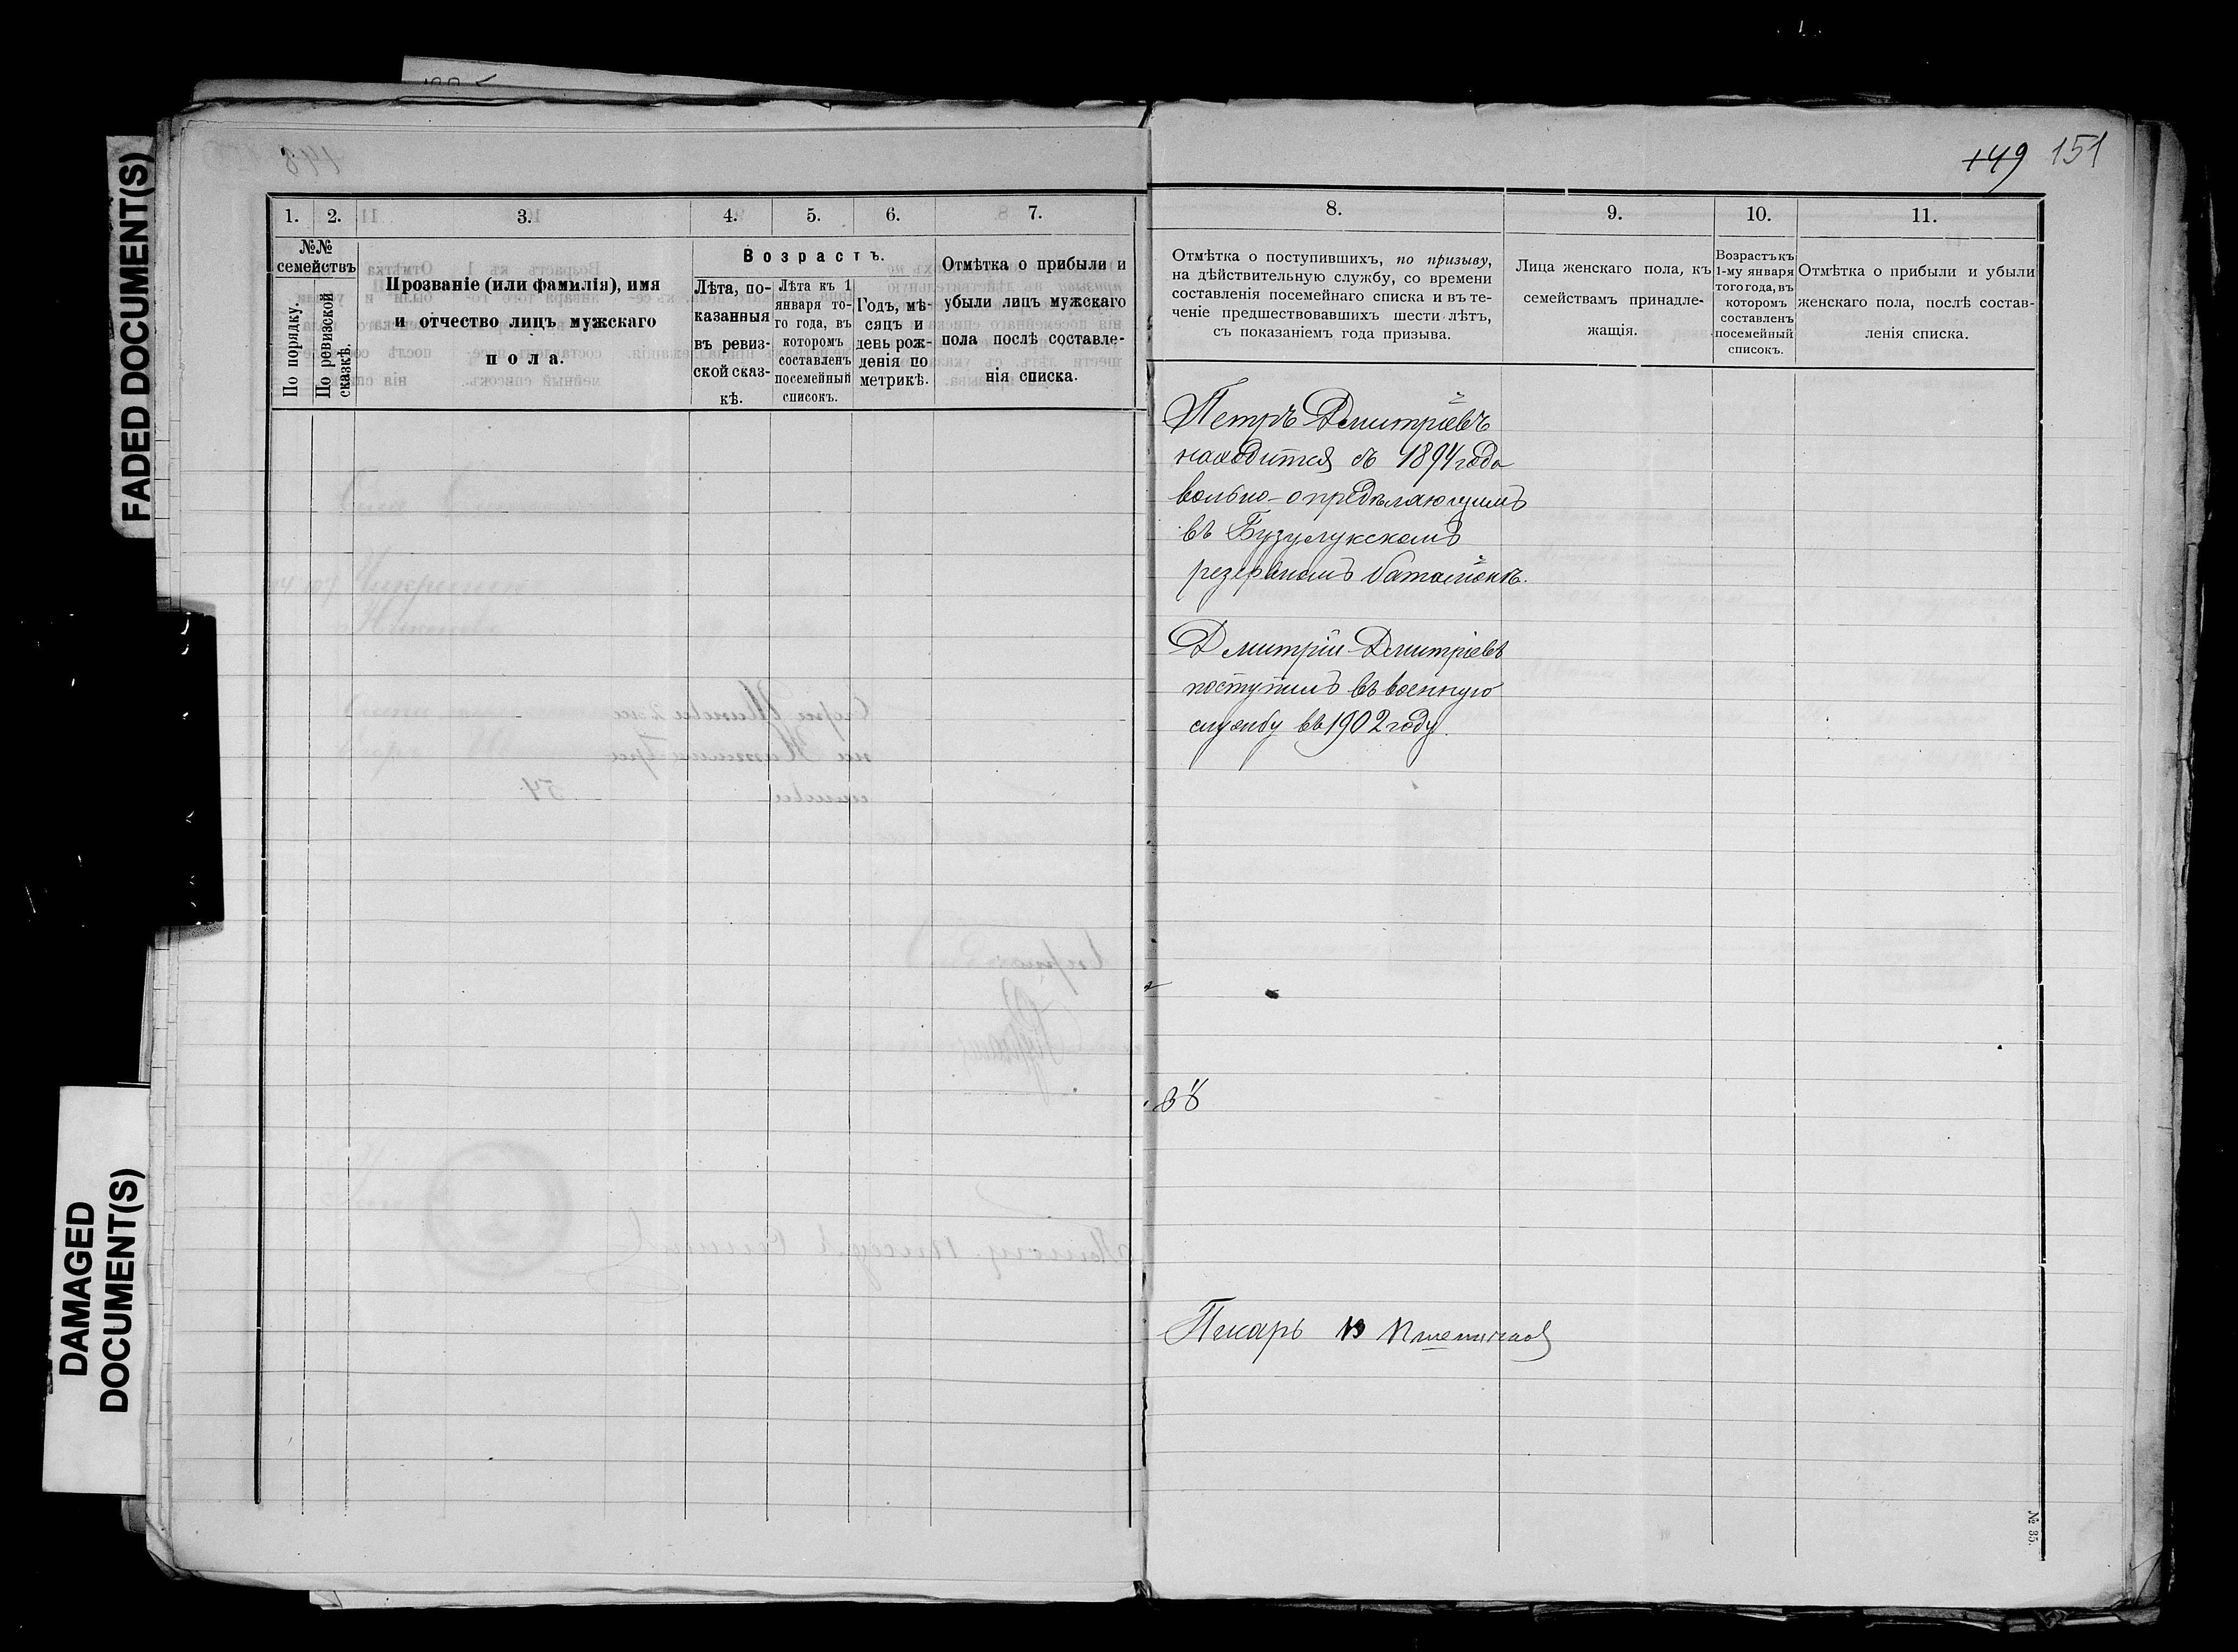 FADED DOCUMENT(S)
DAMAGED
DOCUMENT(S)
149 151
1. 2. 3. 4. 5. 6. 7.
№№
семействъ
По порядку.
По ревизской
сказкѣ.
Прозваніе (или фамилія), имя
и отчество лицъ мужскаго
пола.
Возрастъ.
Лѣта, по-
казанныя
въ ревиз-
ской сказ-
кѣ.
Лѣта къ 1
января то-
го года, въ
которомъ
составленъ
посемейный
списокъ.
Годъ, мѣ-
сяцъ и
день рож-
денія по
метрикѣ.
Отмѣтка о прибыли и
убыли лицъ мужскаго
пола послѣ составле-
нія списка.
8. 9. 10. 11.
Отмѣтка о поступившихъ, по призыву,
на дѣйствительную службу, со времени
составленія посемейнаго списка и въ те-
ченіе предшествовавшихъ шести лѣтъ,
съ показаніемъ года призыва.
Лица женскаго пола, къ
семействамъ принадле-
жащія.
Возрастъ къ
1-му января
того года, въ
которомъ
составленъ
посемейный
списокъ.
Отмѣтка о прибыли и убыли
женскаго пола, послѣ состав-
ленія списка.
Петръ Дмитріевъ
находится съ 1894 года
вольно-опредѣляющимъ
въ Бузулукскомъ
резервномъ баталіонѣ.
Дмитрій Дмитріевъ
поступилъ въ военную
службу въ 1902 году.
въ
Писарь
№ 35.